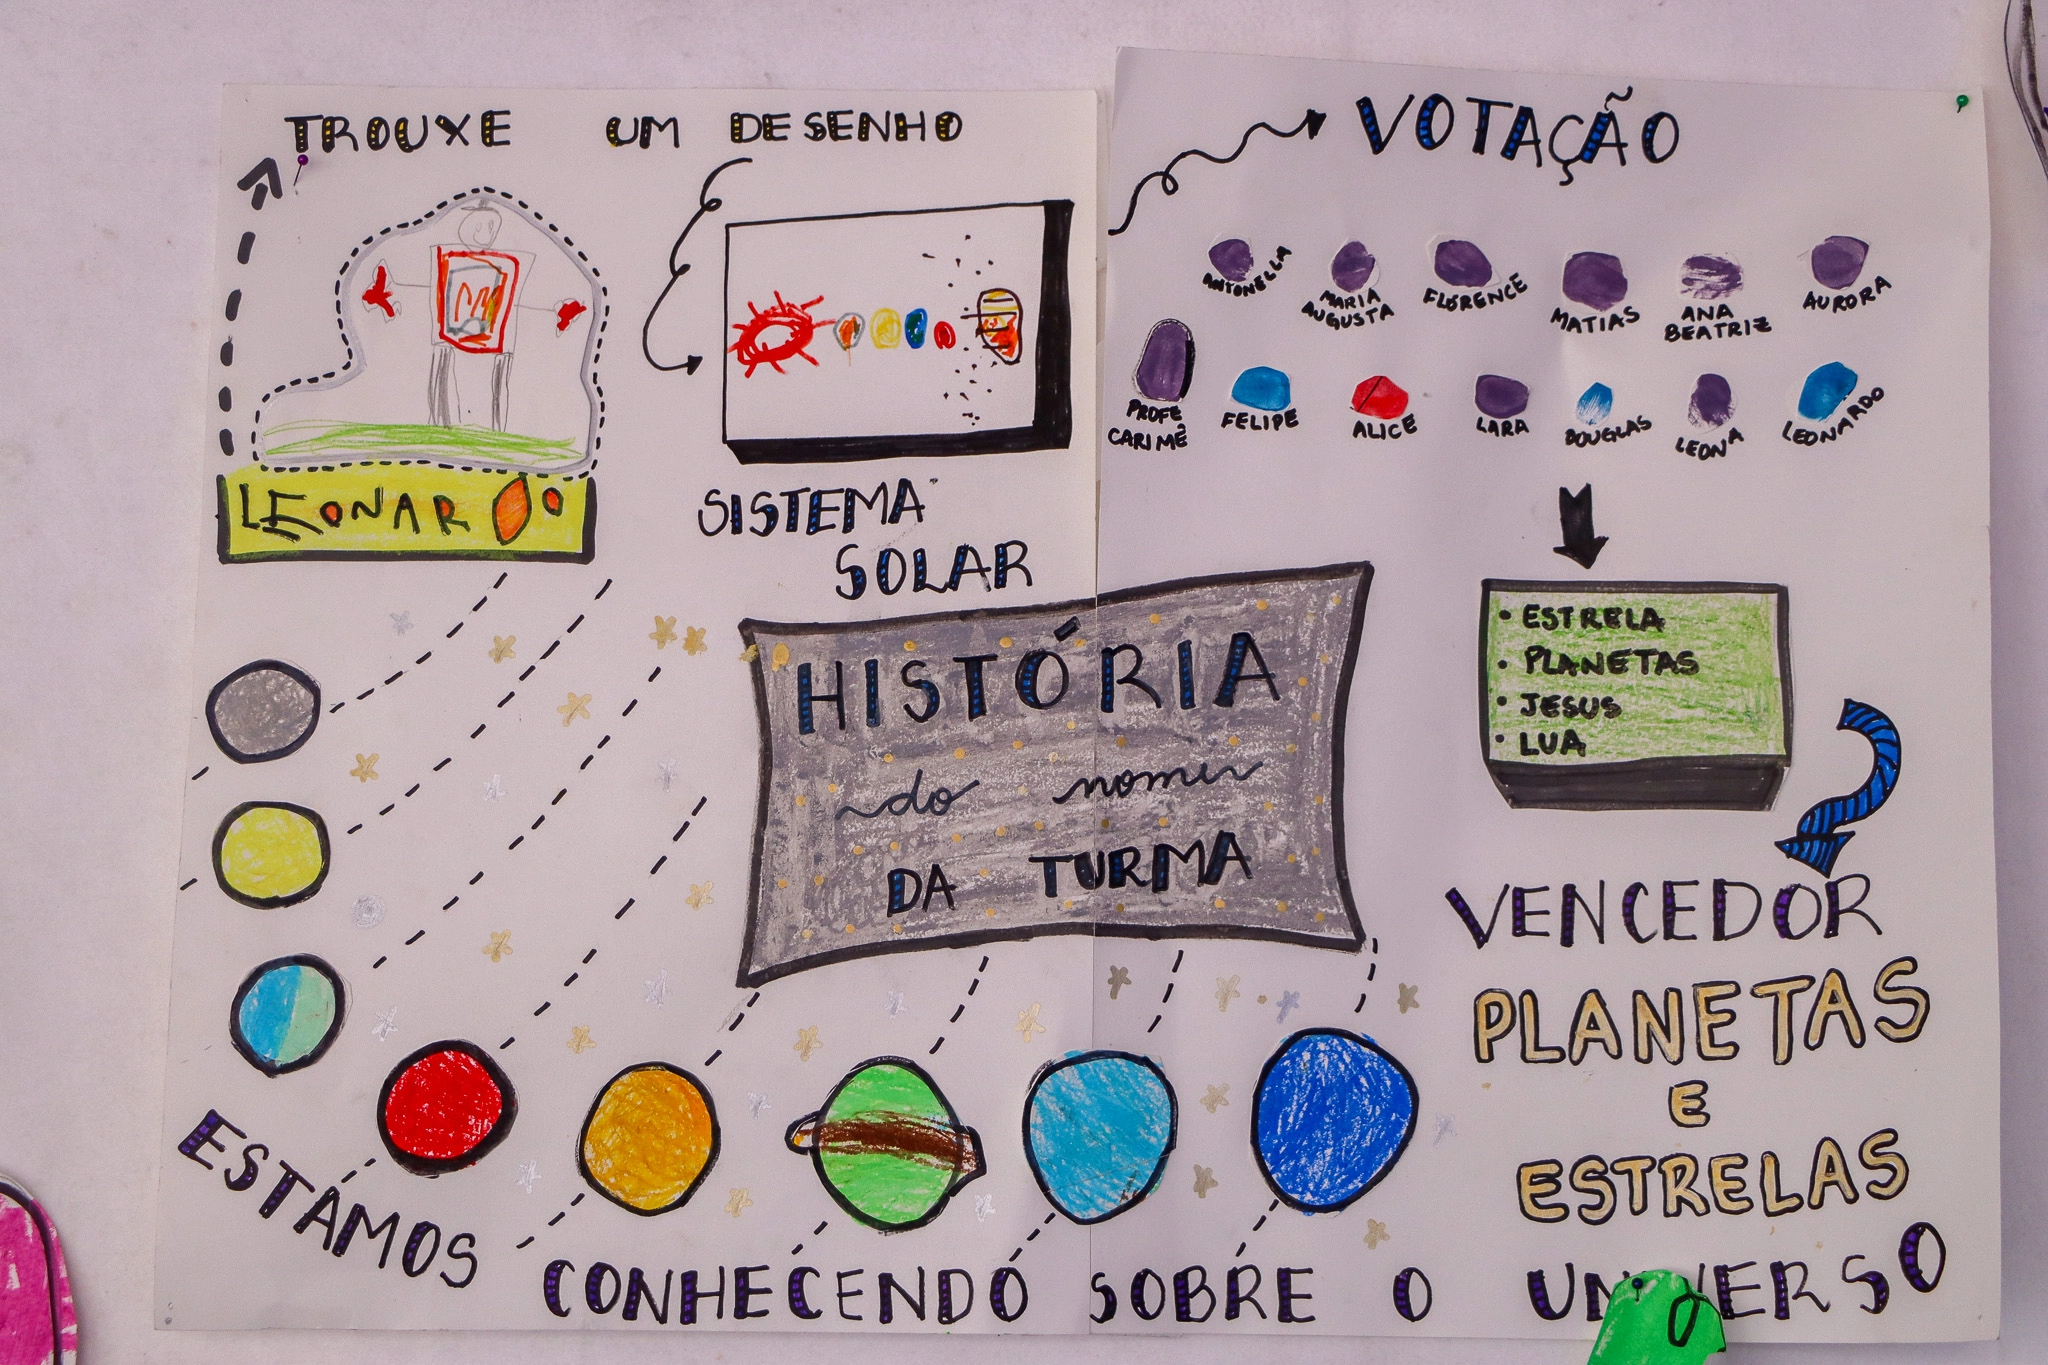 TROUXE UM DESENHO
LEONARDO
SISTEMA
SOLAR
VOTAÇÃO
ANTONELLA
MARIA
AUGUSTA
FLORENCE
MATIAS
ANA
BEATRIZ
AURORA
PROFE
CARIMÊ
FELIPE
ALICE
LARA
DOUGLAS
LEONA
LEONARDO
• ESTRELA
• PLANETAS
• JESUS
• LUA
HISTÓRIA
do nome
DA TURMA
VENCEDOR
PLANETAS
E
ESTRELAS
ESTAMOS CONHECENDO SOBRE O UNIVERSO